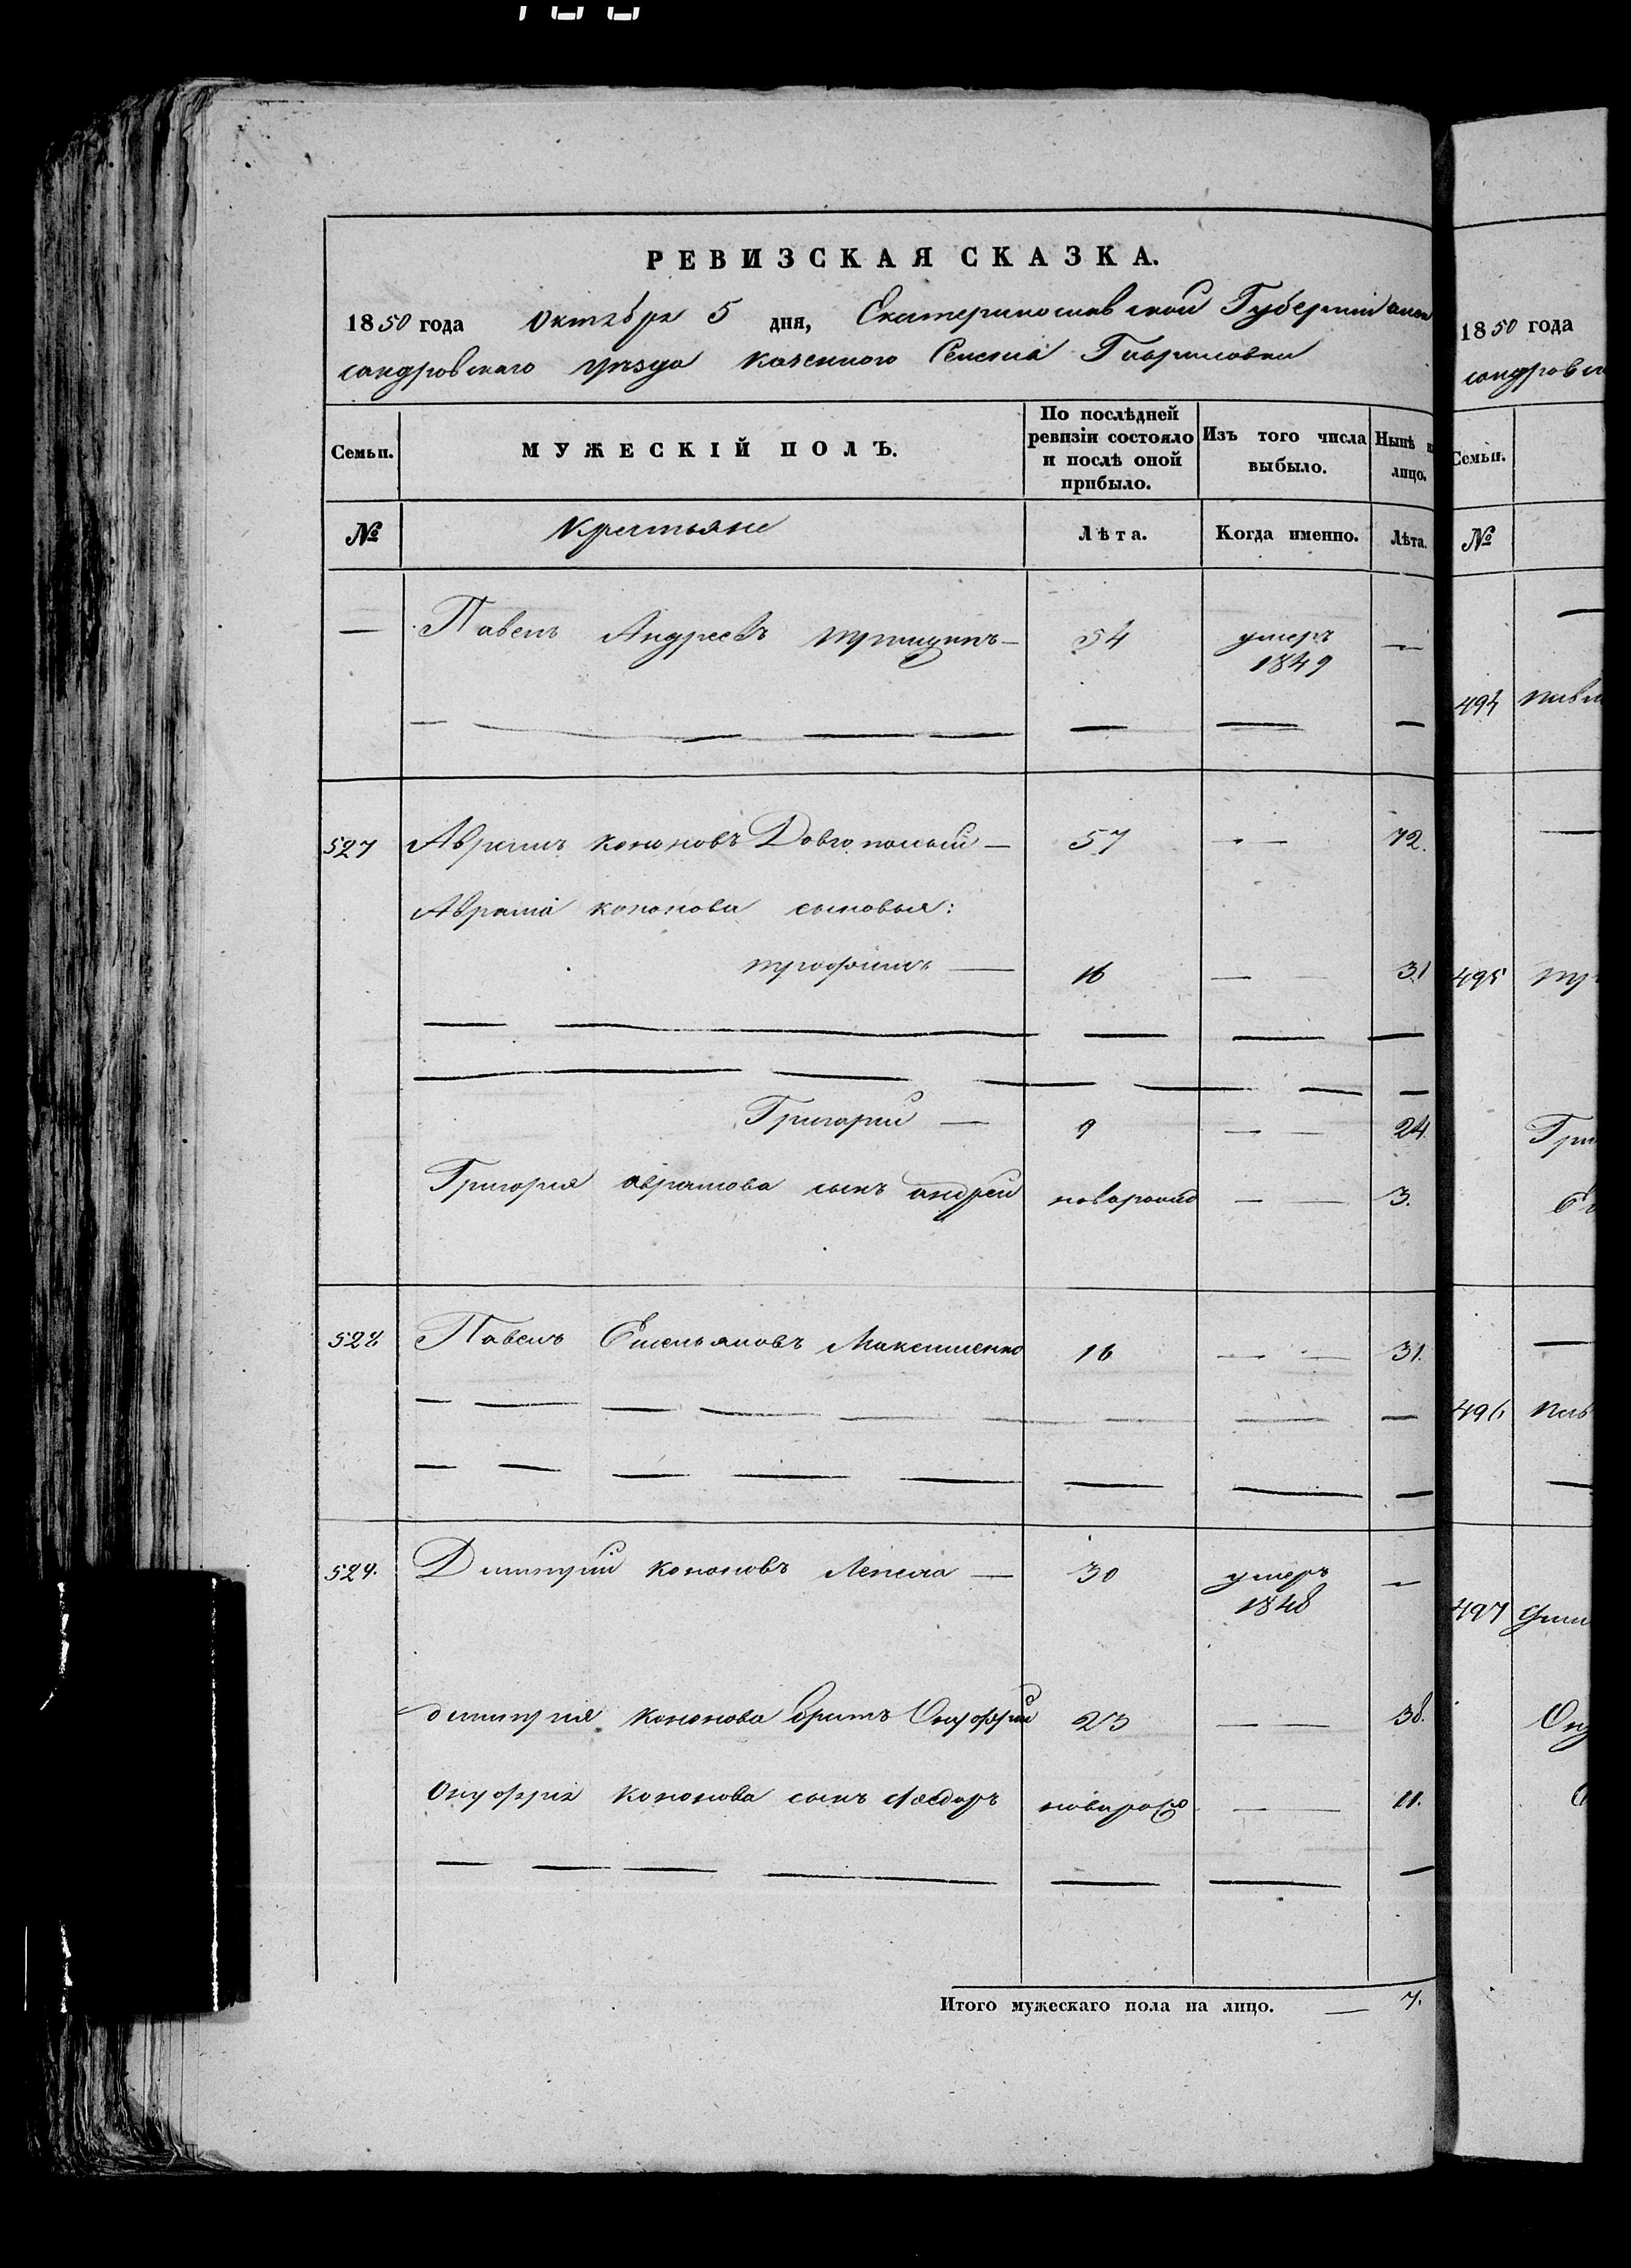 РЕВИЗСКАЯ СКАЗКА.
1850 года Октября 5 дня, Екатеринославской Губерніи Алек
сандровскаго уезда казенного Селенія Гавриловки
Семьи. МУЖЕСКІЙ ПОЛЪ. По послѣдней ревизіи состояло и послѣ оной прибыло. Изъ того числа выбыло. Нынѣ на лицо.
№ Крестьяне Лѣта. Когда именно. Лѣта.
— Павелъ Андреевъ — 54 умеръ 1849 —
527 Аврамъ Кононовъ Довгополый — 57 — 72.
Аврама Кононова сыновья:
трофимъ — 16 — 31
Григорий — 9 — 24.
Григория аврамова сынъ андрей новорожд — 3.
528 Павелъ Емельяновъ Максименко 16 — 31.
529. Дмитрий Кононовъ Лепеха — 30 умеръ 1848 —
дмитрия Кононова братъ Онуфрий 23 — 38.
Онуфрия Кононова сынъ Феодоръ новорожд — 11.
Итого мужескаго пола на лицо. — 7.
1850 года
сандровск
Семьи.
№
494
495
Гри
496
497
Ону